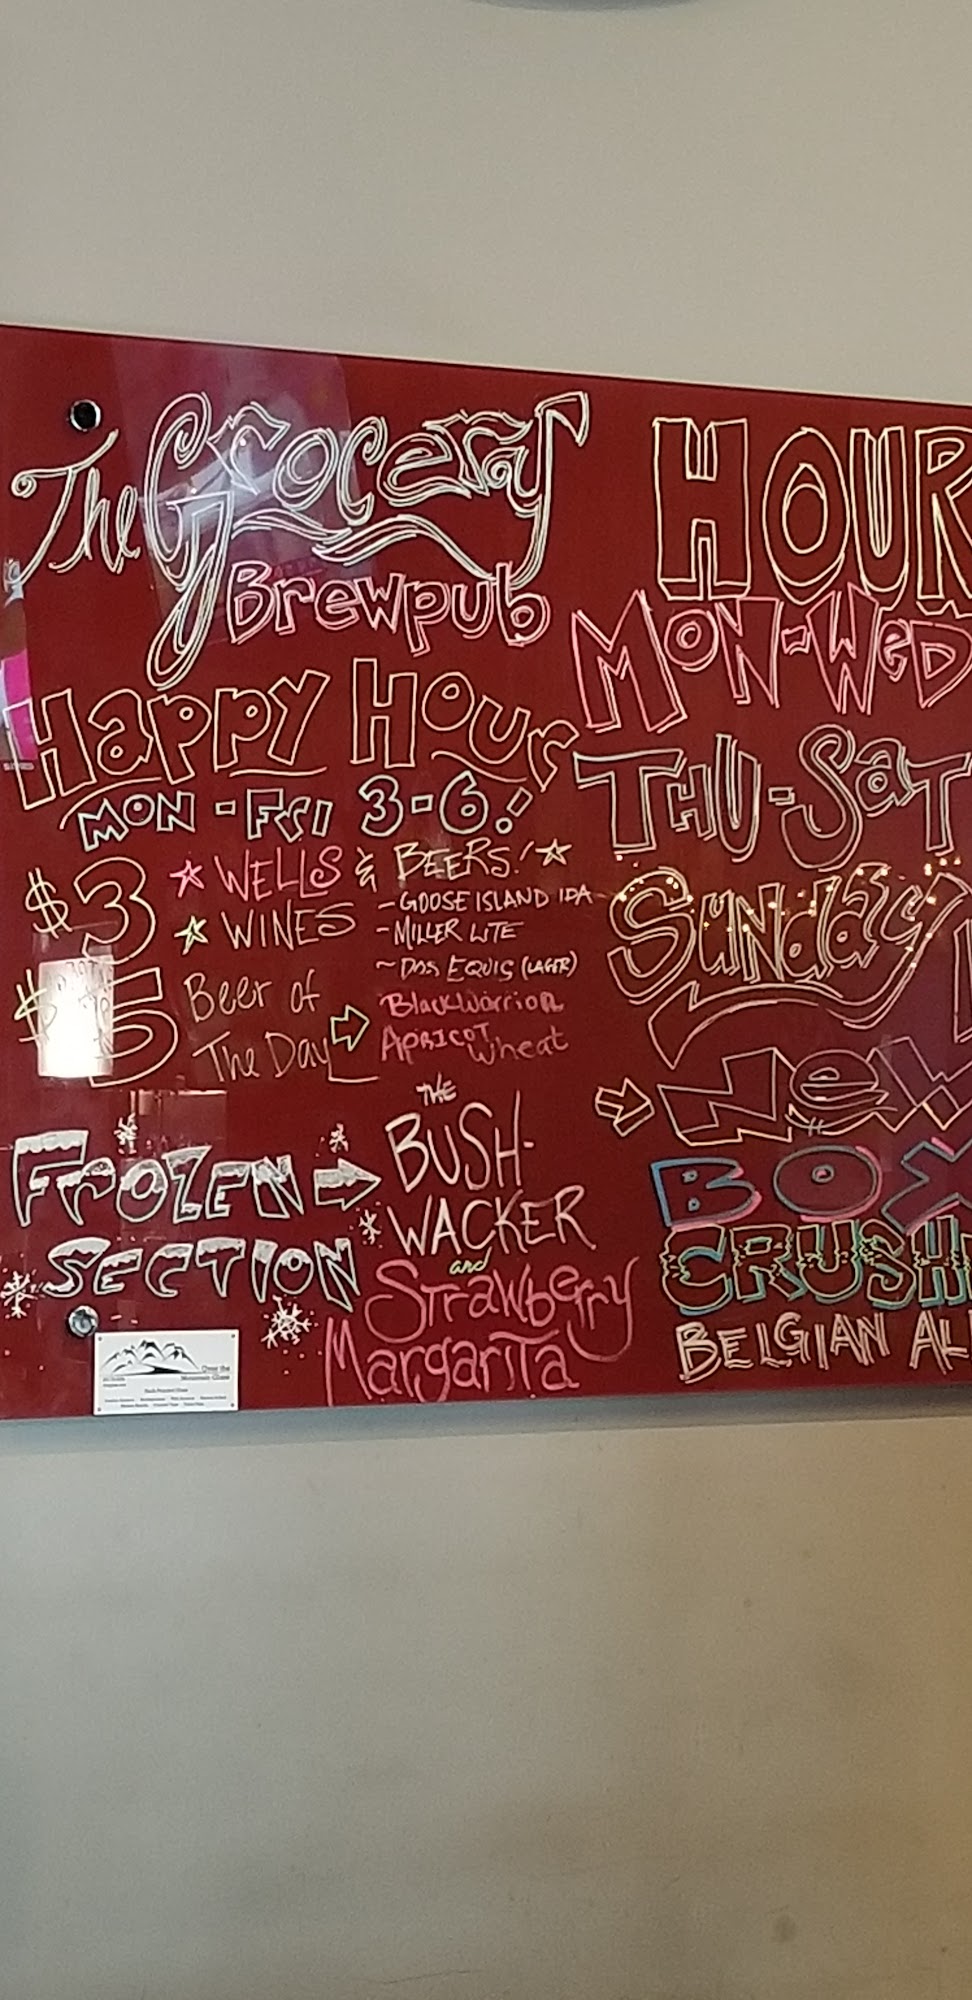 The Grocery
Brewpub
Happy Hour
MON - Fri 3-6!
$3 WELLS & BEERS!
WINES
- GOOSE ISLAND IPA
- MILLER LITE
~ DOS EQUIS (LAGER)
$5 Beer of
The Day
BlackWarrior
APRICOT Wheat
FROZEN
SECTION
THE
BUSH-
WACKER
and
Strawberry
MargariTa
HOUR
MON-WeD
THU-SaT
Sunday
New
BOX
CRUSH
BELGIAN AL
Over the
Mountain Glass